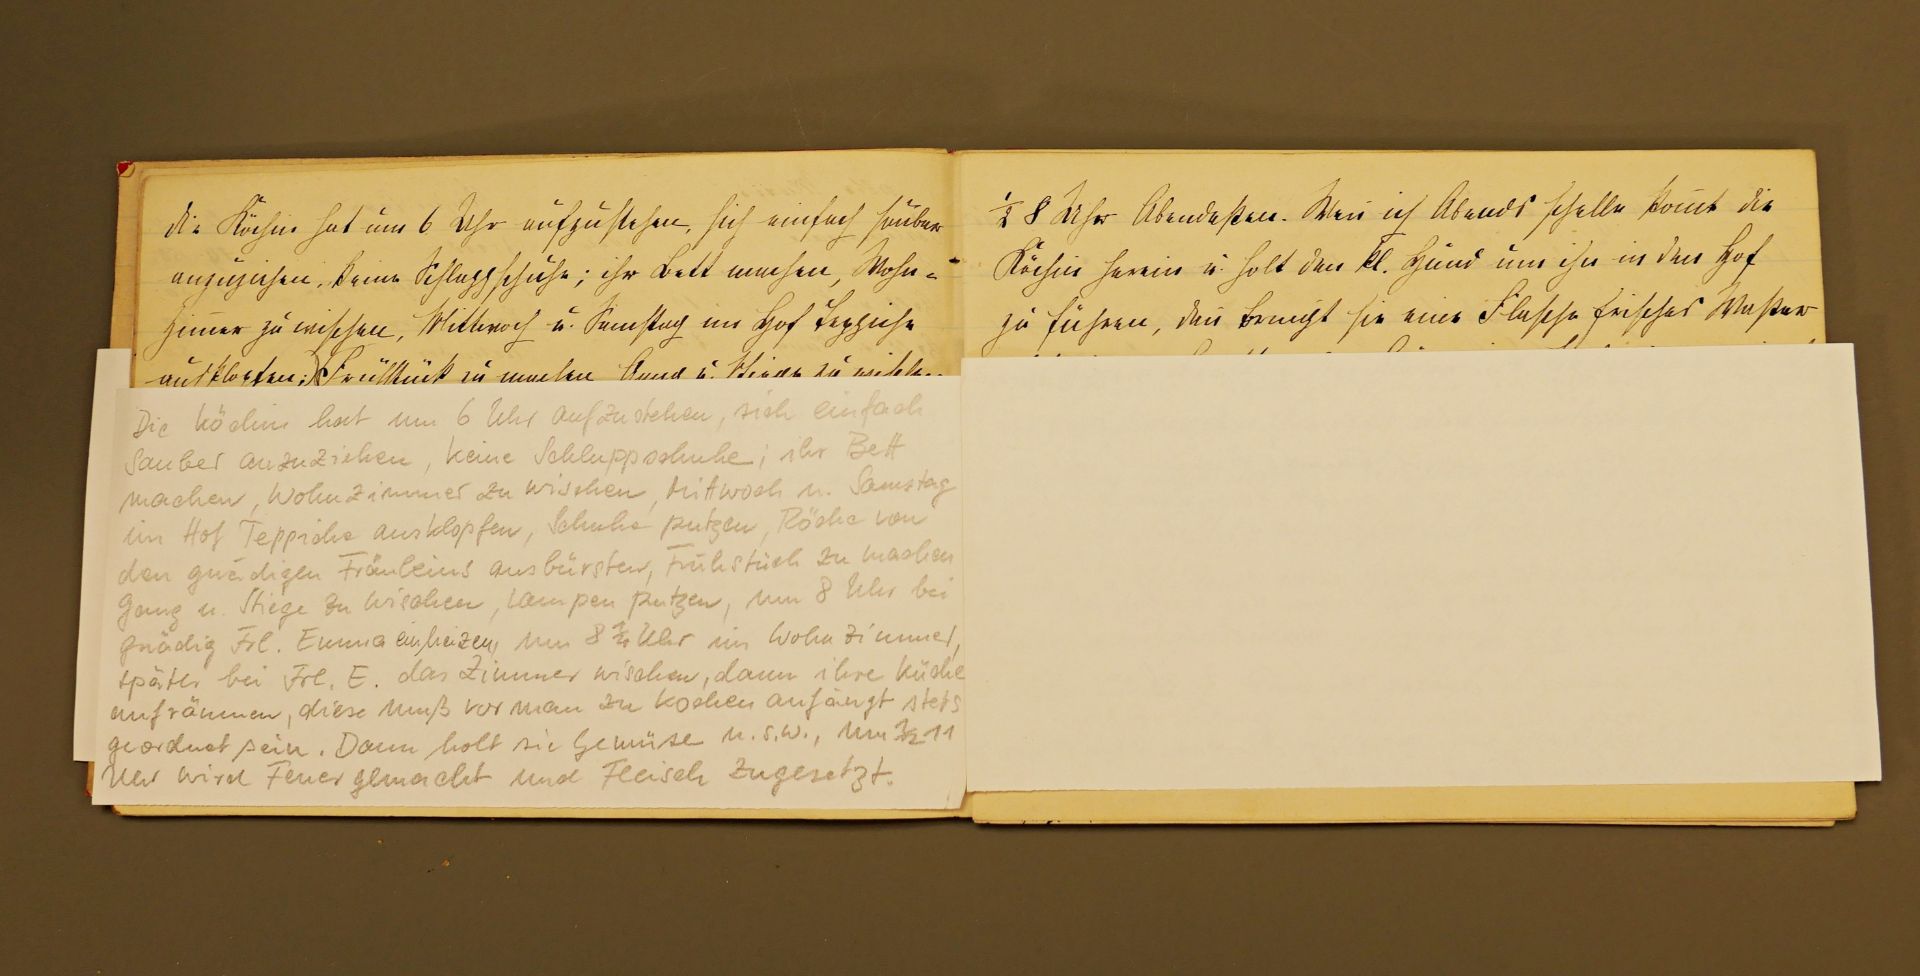 die Köchin hat um 6 Uhr aufzustehen, sich einfach sauber
anzuziehen, keine Schlappschuhe; ihr Bett machen, Wohn=
zimmer zu wischen, Mittwoch u. Samstag im Hof Teppiche
ausklopfen; Frühstück zu machen Gang u. Stiege zu wischen
Die Köchin hat um 6 Uhr aufzustehen, sich einfach
sauber anzuziehen, keine Schluppschuhe; ihr Bett
machen, Wohnzimmer zu wischen, Mittwoch u. Samstag
im Hof Teppiche ausklopfen, Schuhe putzen, Röcke von
den gnädigen Fräuleins ausbürsten, Frühstück zu machen
Gang u. Stiege zu wischen, Lampen putzen, um 8 Uhr bei
gnädig Frl. Emma einheizen, um 8 Uhr im Wohnzimmer,
später bei Frl. E. das Zimmer wischen, dann ihre Küche
aufräumen, diese muß vor man zu kochen anfängt stets
geordnet sein. Dann holt sie Gemüse u.s.w., um 1/2 11
Uhr wird Feuer gemacht und Fleisch zugesetzt.
½ 8 Uhr Abendessen. Wen̄ ich Abends schelle kom̄t die
Köchin herein u. holt den kl. Hund um ihn in den Hof
zu führen, dan̄ bringt sie eine Flasche frisches Wasser